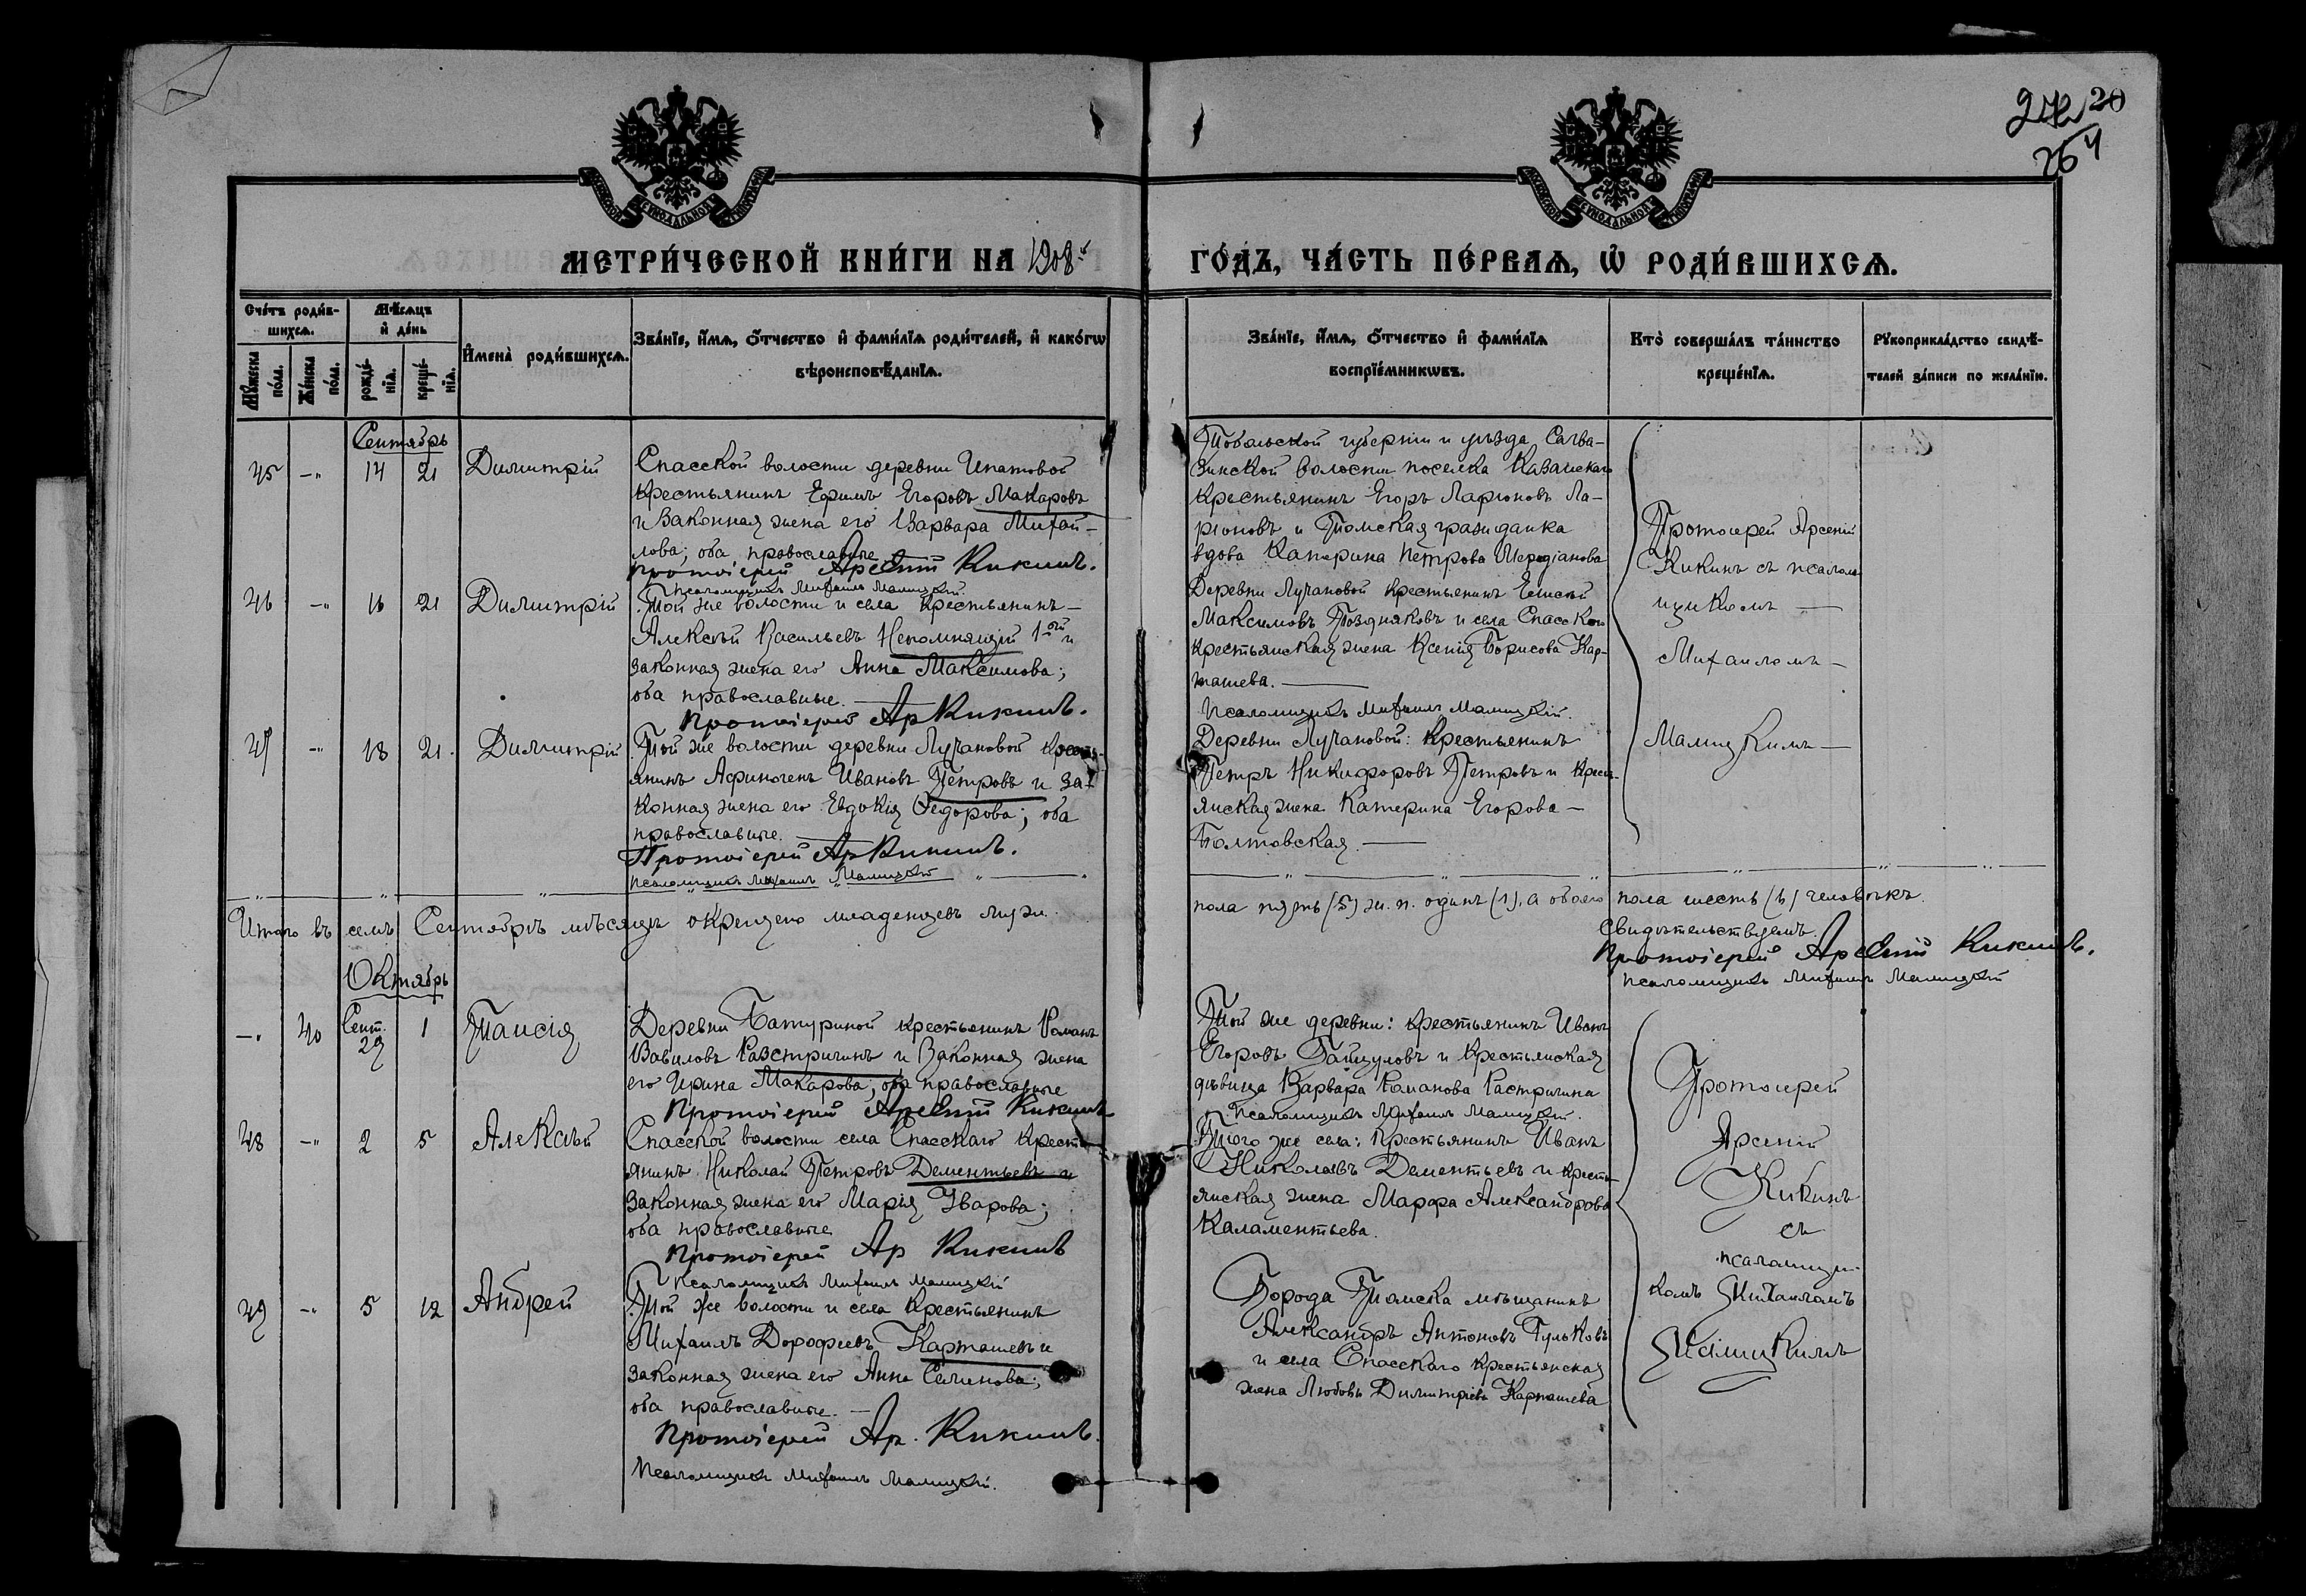 274 20
264
МЕТРИ́ЧЕСКОЙ КНИ́ГИ НА 1908 й
ГО́ДЪ, ЧА́СТЬ ПЕ́РВАѦ, Ѡ҆ РОДИ́ВШИХСѦ.
Сче́тъ роди́в-
шихсѧ.
Мꙋ́жеска по́ла.
Же́нска по́ла.
Мѣ́сѧцъ
и҆ де́нь
рожде́-
нїѧ.
креще́-
нїѧ.
И҆мена̀ роди́вшихсѧ.
Зва́нїе, и҆́мѧ, ѻ҆́тчество и҆ фами́лїѧ роди́телей, и҆ како́гѡ
вѣроисповѣ́данїѧ.
Зва́нїе, и҆́мѧ, ѻ҆́тчество и҆ фами́лїѧ
воспрїе́мникѡвъ.
Кто̀ соверша́лъ та́инство
креще́нїѧ.
Рꙋкоприкла́дство свидѣ́-
телей за́писи по жела́нїю.
Сентябрь
45 -"- 14 21 Димитрій
Спасской волости деревни Ипатовой
крестьянинъ Ефимъ Егоровъ Макаровъ
и законная жена его Варвара Михай-
лова; оба православные
Протоіерей Арсеній Кикинъ.
Псаломщикъ Михаилъ Малицкій.
Тобольской губерніи и уѣзда
волости поселка Казанскаго
крестьянинъ Егоръ Ларіоновъ Ла-
ріоновъ и Томская гражданка
вдова Катерина Петрова
46 -"- 16 21 Димитрій
Той же волости и села крестьянинъ —
Алексѣй Васильевъ Непомнящій 1ой и
законная жена его Анна Максимова;
оба православные. —
Протоіерей Ар Кикинъ.
Деревни Лучановой крестьянинъ Елисей
Максимовъ Поздняковъ и села Спасскаго
крестьянская жена Ксенія Борисова Кар-
ташева. —
Псаломщикъ Михаилъ Малицкій.
47 -"- 18 21. Димитрій
Той же волости деревни Лучановой кресть-
янинъ Афиногенъ Ивановъ Петровъ и за-
конная жена его Евдокія Ѳедорова; оба
православные. —
Протоіерей Ар Кикинъ.
Псаломщикъ Михаилъ Малицкій
Деревни Лучановой: крестьянинъ
Петръ Никифоровъ Петровъ и кресть-
янская жена Катерина Егорова —
Болтовская. —
Протоіерей Арсеній
Кикинъ съ псалом-
щикомъ —
Михаиломъ —
Малицкимъ —
Итого въ семъ Сентябрѣ мѣсяцѣ окрещено младенцевъ муж.
пола пять (5) ж. п. одинъ (1), а обоего пола шесть (6) человѣкъ.
Свидѣтельствуемъ.
Протоіерей Арсеній Кикинъ.
Псаломщикъ Михаилъ Малицкій
Октябрь
-"- 40 Сент. 29 1 Таисія
Деревни Батуриной крестьянинъ Романъ
Вавиловъ Разстригинъ и законная жена
его Ирина Макарова; оба православные
Протоіерей Арсеній Кикинъ
Той же деревни: крестьянинъ Иванъ
Егоровъ и крестьянская
дѣвица Варвара Романова Растригина
Псаломщикъ Михаилъ Малицкій.
48 -"- 2 5 Алексѣй
Спасской волости села Спасскаго кресть-
янинъ Николай Петровъ Дементьевъ и
законная жена его Марія Уварова;
оба православные
Протоіерей Ар Кикинъ
Псаломщикъ Михаилъ Малицкій
Того же села: крестьянинъ Иванъ
Николаевъ Дементьевъ и кресть-
янская жена Марфа Александрова
Каламентьева.
49 -"- 5 12 Андрей
Той же волости и села крестьянинъ
Михаилъ Дорофеевъ Карташевъ и
законная жена его Анна Семенова;
оба православные. —
Протоіерей Ар. Кикинъ.
Псаломщикъ Михаилъ Малицкій.
Города Томска мѣщанинъ
Александръ Антоновъ Гульковъ
и села Спасскаго крестьянская
жена Любовь Димитріева Карташева
Протоіерей
Арсеній
Кикинъ
съ
псаломщи-
комъ Михаиломъ
Малицкимъ